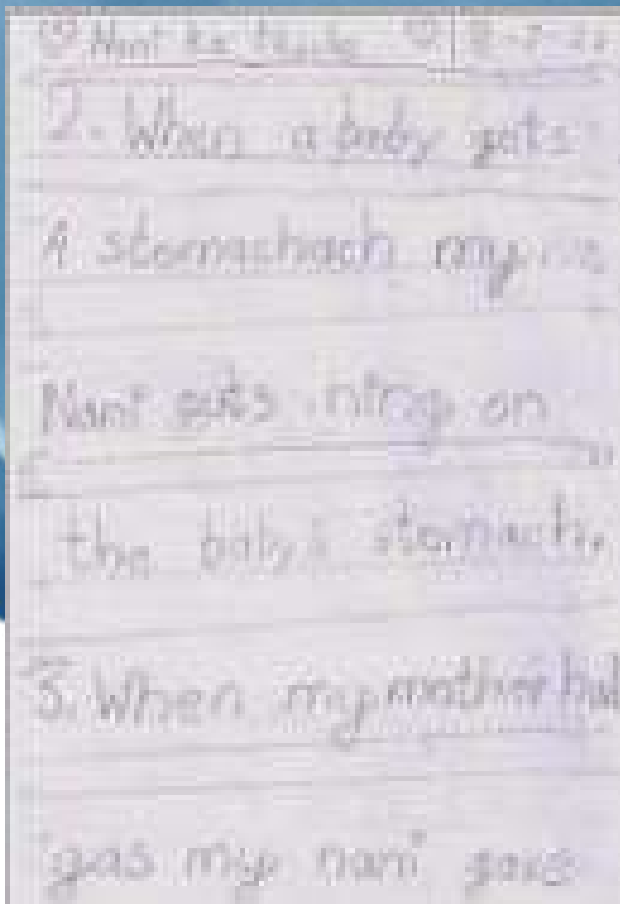 Nani ka
2. When a baby gets
A stomachach my
Nani puts hing on
the baby's stomach.
3. When my mother had
gas my nani gave